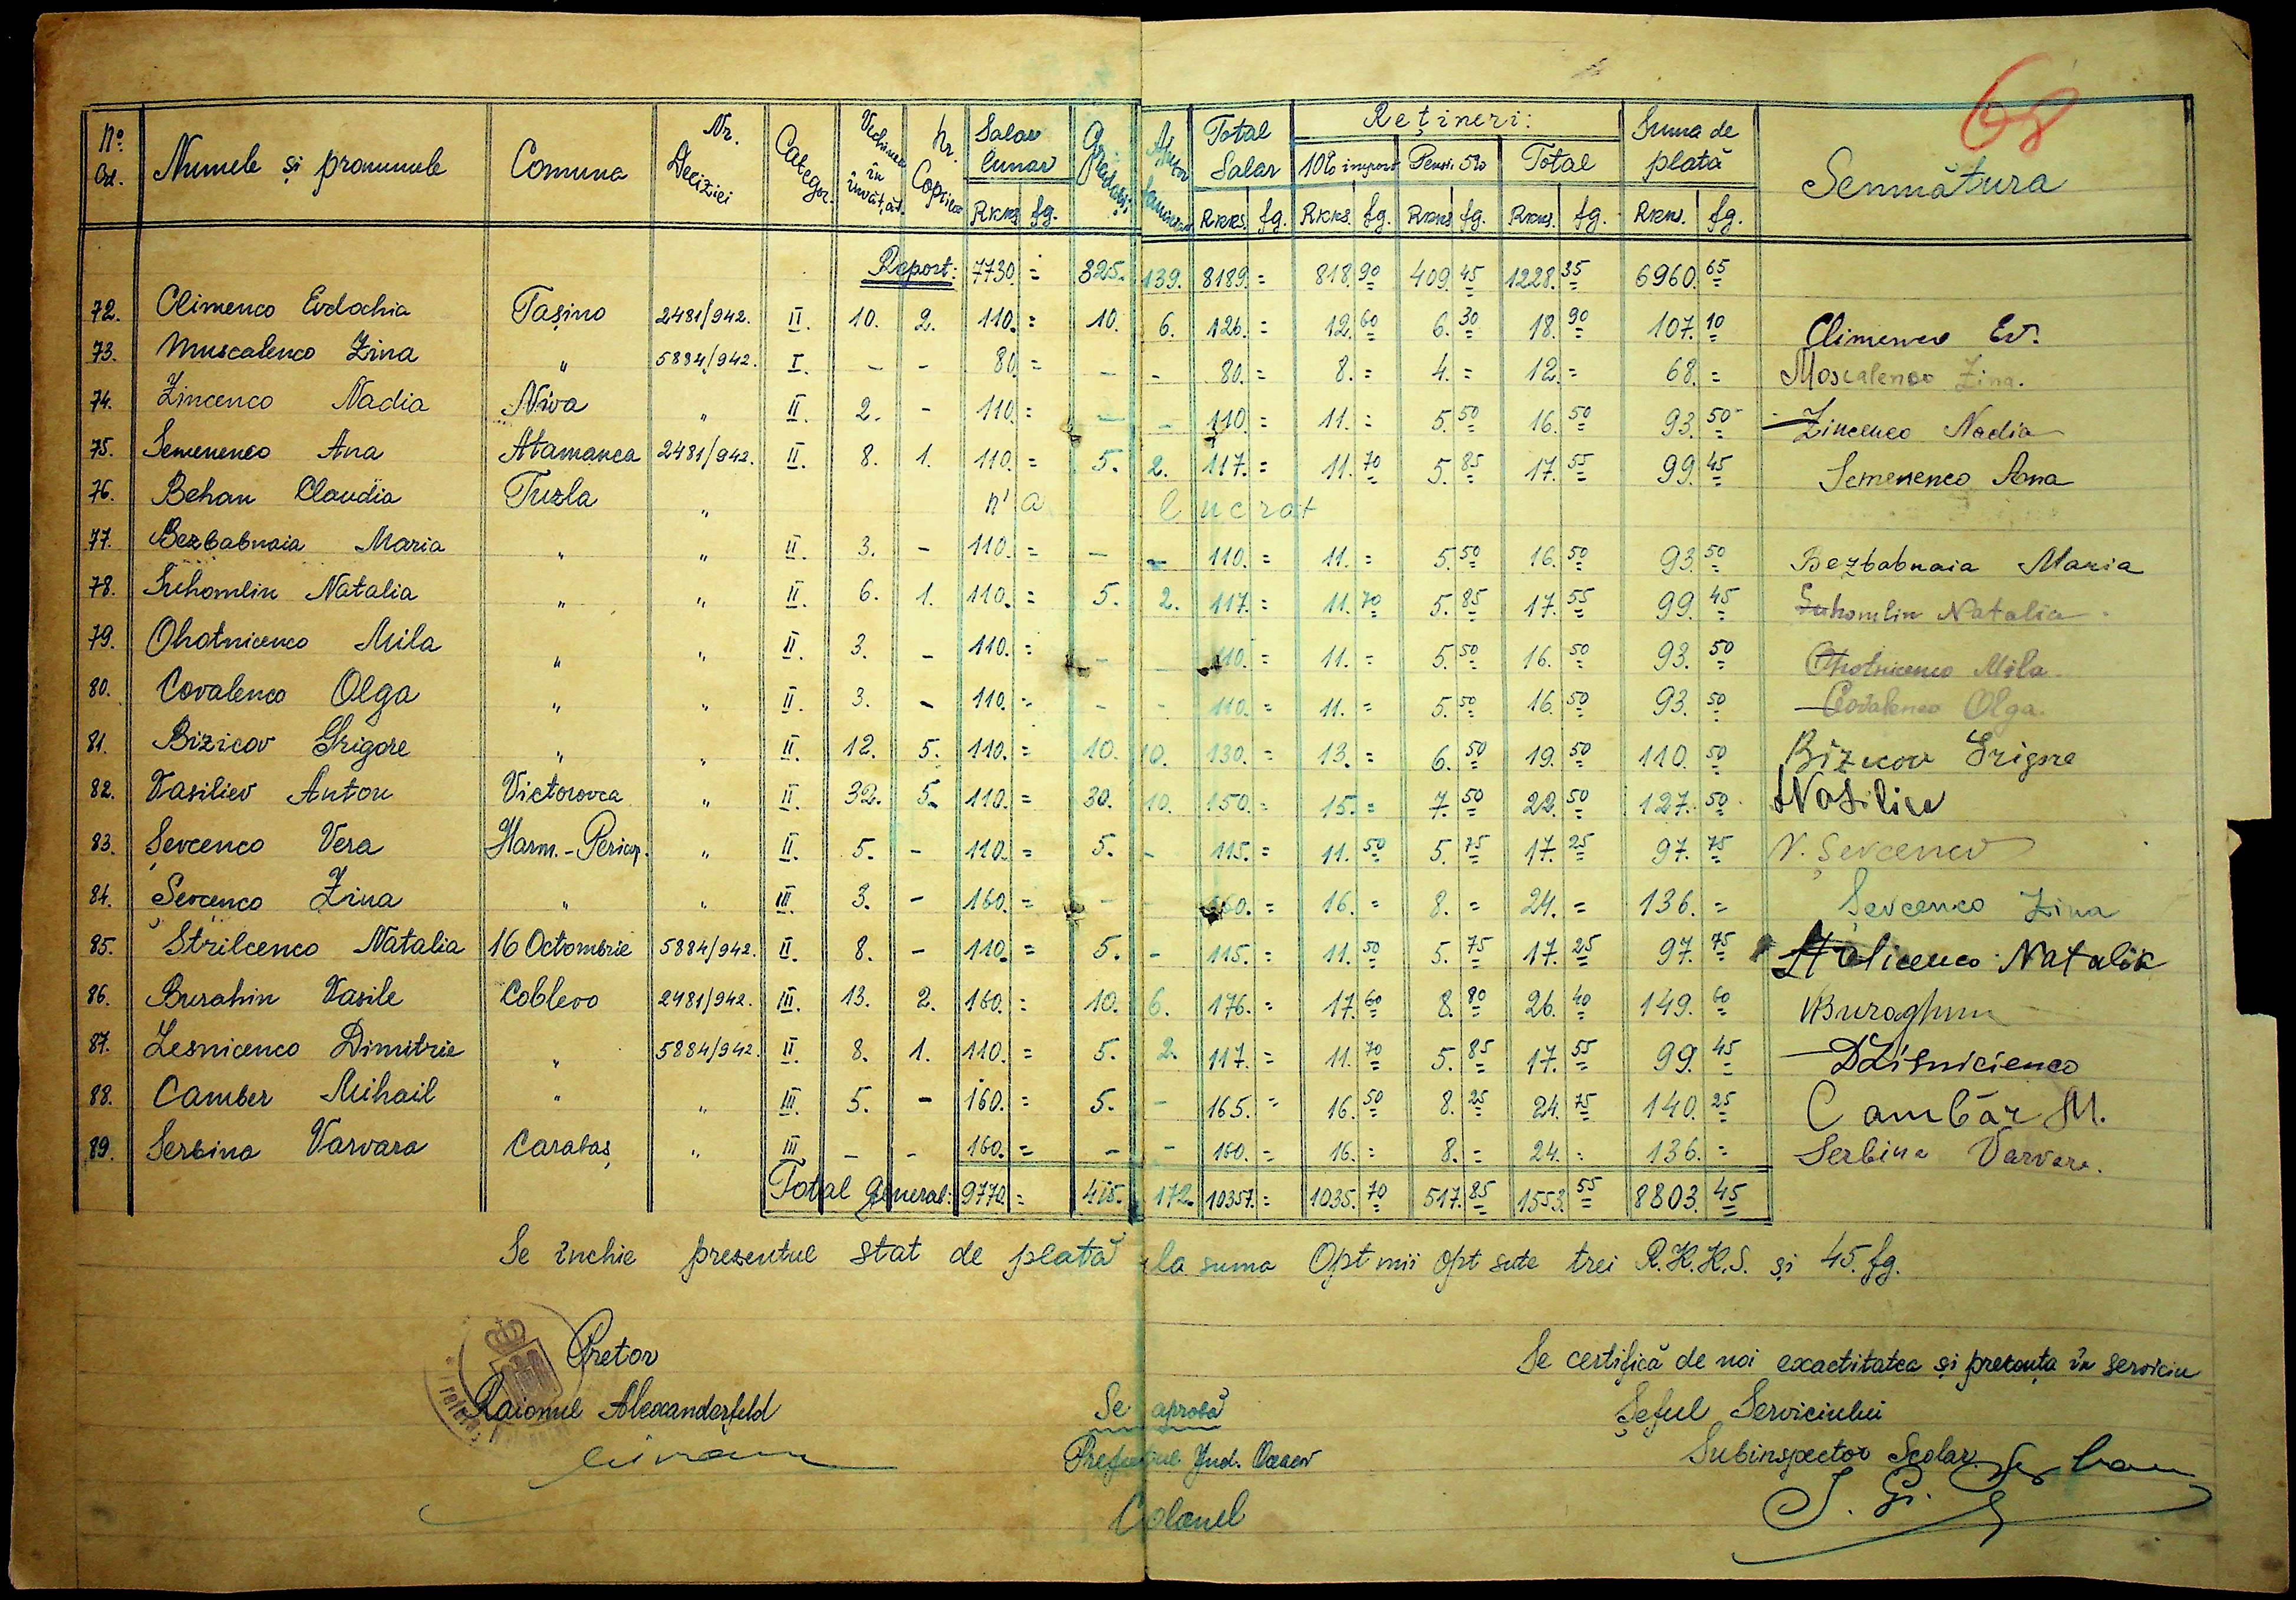 68
No. Crt. | Numele și pronumele | Comuna | Nr. Deciziei | Categor. | Vechimea în învățăt. | Nr. Copiilor | Salar lunar | Gradații | Ajutor familiar | Total Salar | Rețineri: | Suma de plată | Semnătura
10% impozit | Pensii 5% | Total
RKKS. | fg. | RKKS. | fg. | RKKS. | fg. | RKKS. | fg. | RKKS. | fg. | RKKS. | fg.
Report: | 7730. = | 325. | 139. | 8189. = | 818. 90 | 409. 45 | 1228. 35 | 6960. 65
72. | Climenco Evdochia | Tașino | 2481/942. | II. | 10. | 2. | 110. = | 10. | 6. | 126. = | 12. 60 | 6. 30 | 18. 90 | 107. 10 | Climenco Ev.
73. | Muscalenco Zina | " | 5884/942. | I. | - | - | 80. = | - | - | 80. = | 8. = | 4. = | 12. = | 68. = | Moscalenco Zina.
74. | Zincenco Nadia | Niva | " | II. | 2. | - | 110. = | - | - | 110. = | 11. = | 5. 50 | 16. 50 | 93. 50 | Zincenco Nadia
75. | Semenenco Ana | Atamanca | 2481/942. | II. | 8. | 1. | 110. = | 5. | 2. | 117. = | 11. 70 | 5. 85 | 17. 55 | 99. 45 | Semenenco Ana
76. | Behan Claudia | Tuzla | " | n'a lucrat
77. | Bezbabnaia Maria | " | " | II. | 3. | - | 110. = | - | - | 110. = | 11. = | 5. 50 | 16. 50 | 93. 50 | Bezbabnaia Maria
78. | Suhomlin Natalia | " | " | II. | 6. | 1. | 110. = | 5. | 2. | 117. = | 11. 70 | 5. 85 | 17. 55 | 99. 45 | Suhomlin Natalia
79. | Ohotnicenco Mila | " | " | II. | 3. | - | 110. = | - | - | 110. = | 11. = | 5. 50 | 16. 50 | 93. 50 | Ohotnicenco Mila.
80. | Covalenco Olga | " | " | II. | 3. | - | 110. = | - | - | 110. = | 11. = | 5. 50 | 16. 50 | 93. 50 | Covalenco Olga.
81. | Bizicov Grigore | " | " | II. | 12. | 5. | 110. = | 10. | 10. | 130. = | 13. = | 6. 50 | 19. 50 | 110. 50 | Bizicov Grigore
82. | Vasiliev Anton | Victorovca | " | II. | 32. | 5. | 110. = | 30. | 10. | 150. = | 15. = | 7. 50 | 22. 50 | 127. 50 | Vasiliev
83. | Șevcenco Vera | Harm.-Pericop. | " | II. | 5. | - | 110. = | 5. | - | 115. = | 11. 50 | 5. 75 | 17. 25 | 97. 75 | V. Șevcenco
84. | Șevcenco Zina | " | " | III. | 3. | - | 160. = | - | - | 160. = | 16. = | 8. = | 24. = | 136. = | Șevcenco Zina
85. | Strilcenco Natalia | 16 Octombrie | 5884/942. | II. | 8. | - | 110. = | 5. | - | 115. = | 11. 50 | 5. 75 | 17. 25 | 97. 75 | Natalia
86. | Burahin Vasile | Coblevo | 2481/942. | III. | 13. | 2. | 160. = | 10. | 6. | 176. = | 17. 60 | 8. 80 | 26. 40 | 149. 60 | VBuraghin
87. | Lesnicenco Dimitrie | " | 5884/942. | II. | 8. | 1. | 110. = | 5. | 2. | 117. = | 11. 70 | 5. 85 | 17. 55 | 99. 45 | DLisnicienco
88. | Camber Mihail | " | " | III. | 5. | - | 160. = | 5. | - | 165. = | 16. 50 | 8. 25 | 24. 75 | 140. 25 | Cambăr M.
89. | Serbina Varvara | Carabaș | " | III | - | - | 160. = | - | - | 160. = | 16. = | 8. = | 24. = | 136. = | Serbina Varvara.
Total general: | 9770. = | 415. | 172. | 10357. = | 1035. 70 | 517. 85 | 1553. 55 | 8803. 45
Se închie prezentul stat de plată la suma Opt mii opt sute trei R.K.K.S. și 45. fg.
Pretor
Raionul Alexanderfeld
Se aprobă
Prefectul Jud. Oceacov
Colonel
Se certifică de noi exactitatea și prezența în serviciu
Șeful Serviciului
Subinspector Școlar